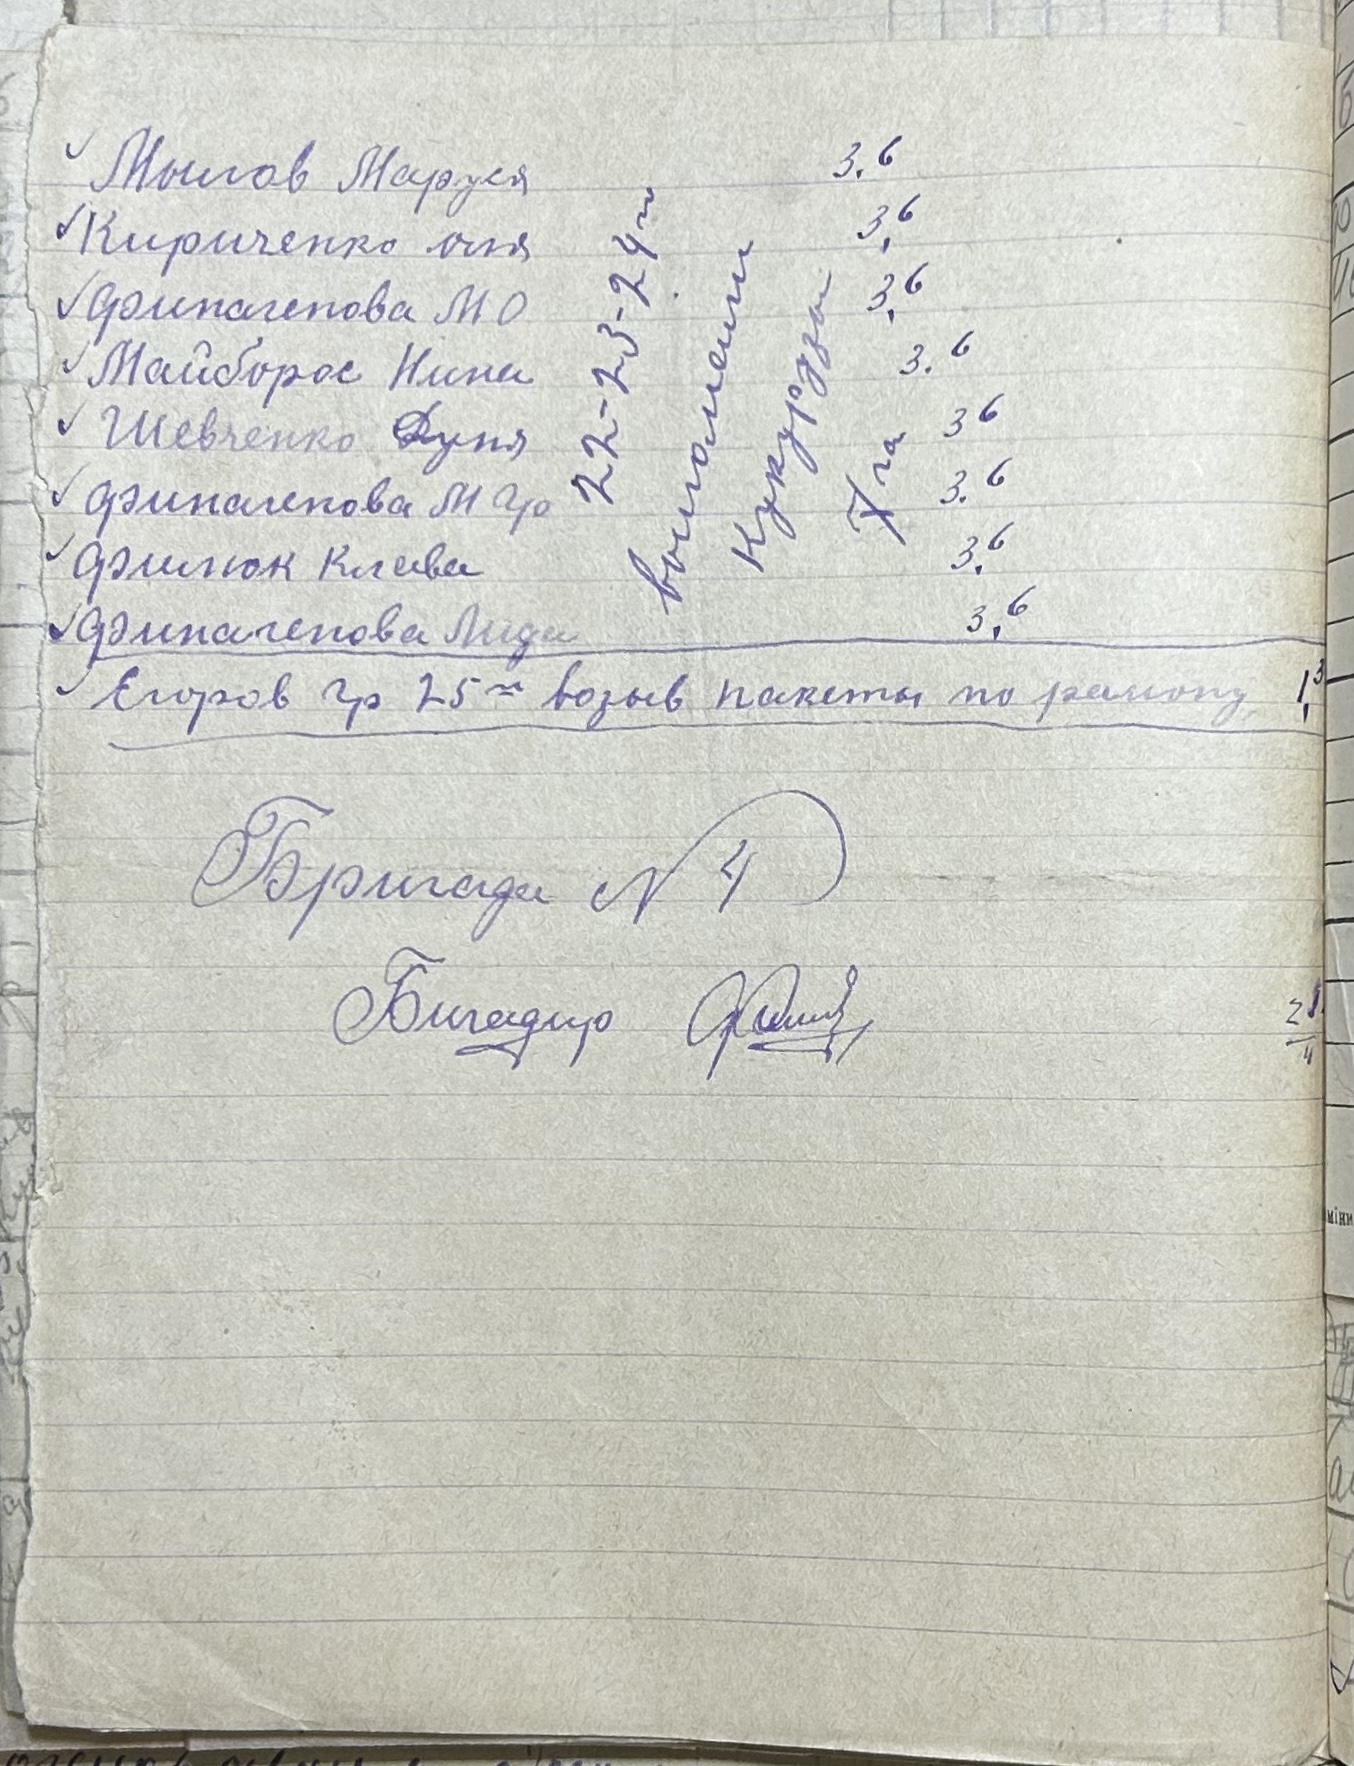 Мылов Маруся 3,6
Кириченко оля 3,6
Финагенова М О 3,6
Майборос Нина 3.6
Шевченко Дуня 3 6
Финагенова М Гр 3.6
Филюк Клава 3,6
Финагенова Лида 3,6
22-23-24го
выполели
Кукурдзы
7 га
Егоров Гр 25го возыв пакеты по району 1,3
Бригада N 4
Бигадир